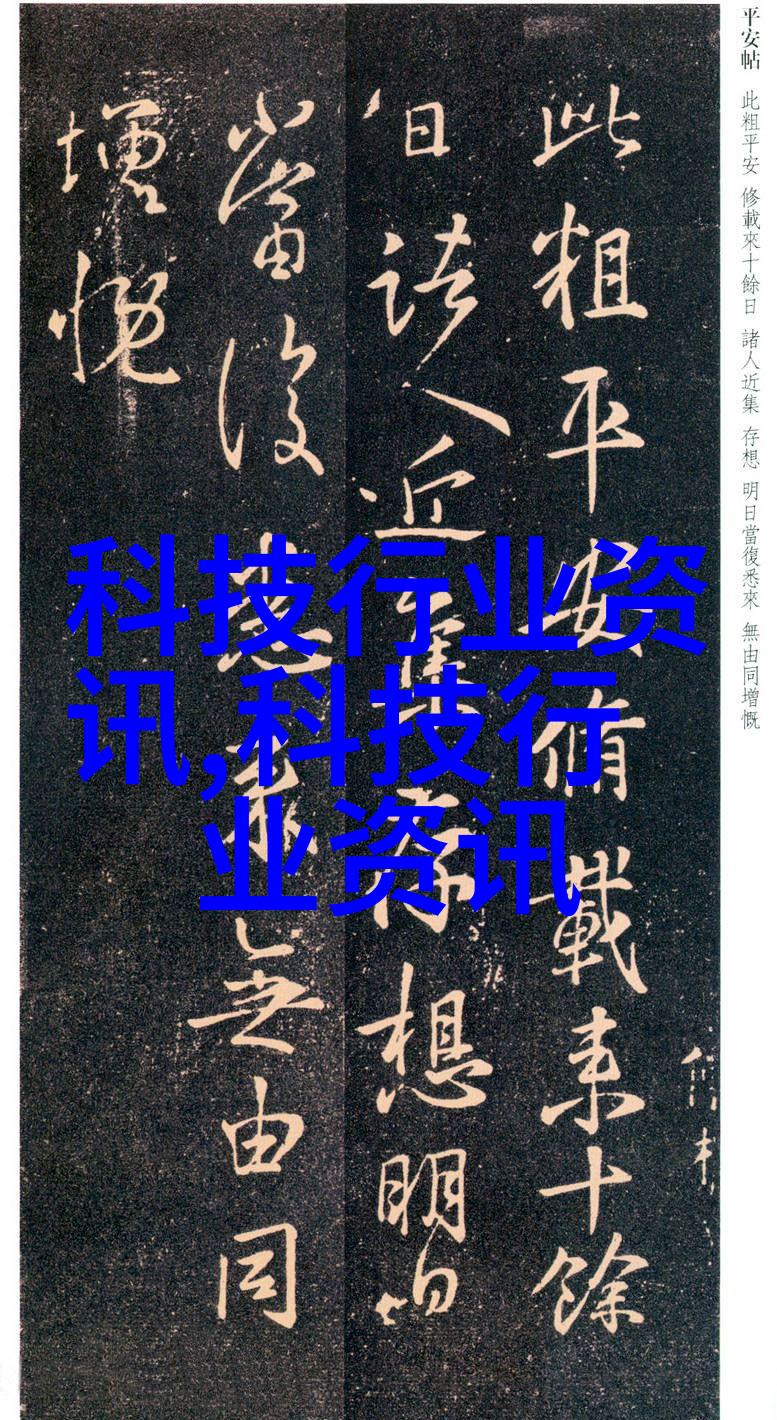 平安帖 此粗平安 修載來十餘日 諸人近集 存想 明日當復悉來 無由同增慨
此粗平安脩載来十餘
日諸人近集存想明日
當復悉來無由同
增慨
科技行业资
讯,科技行
业资讯